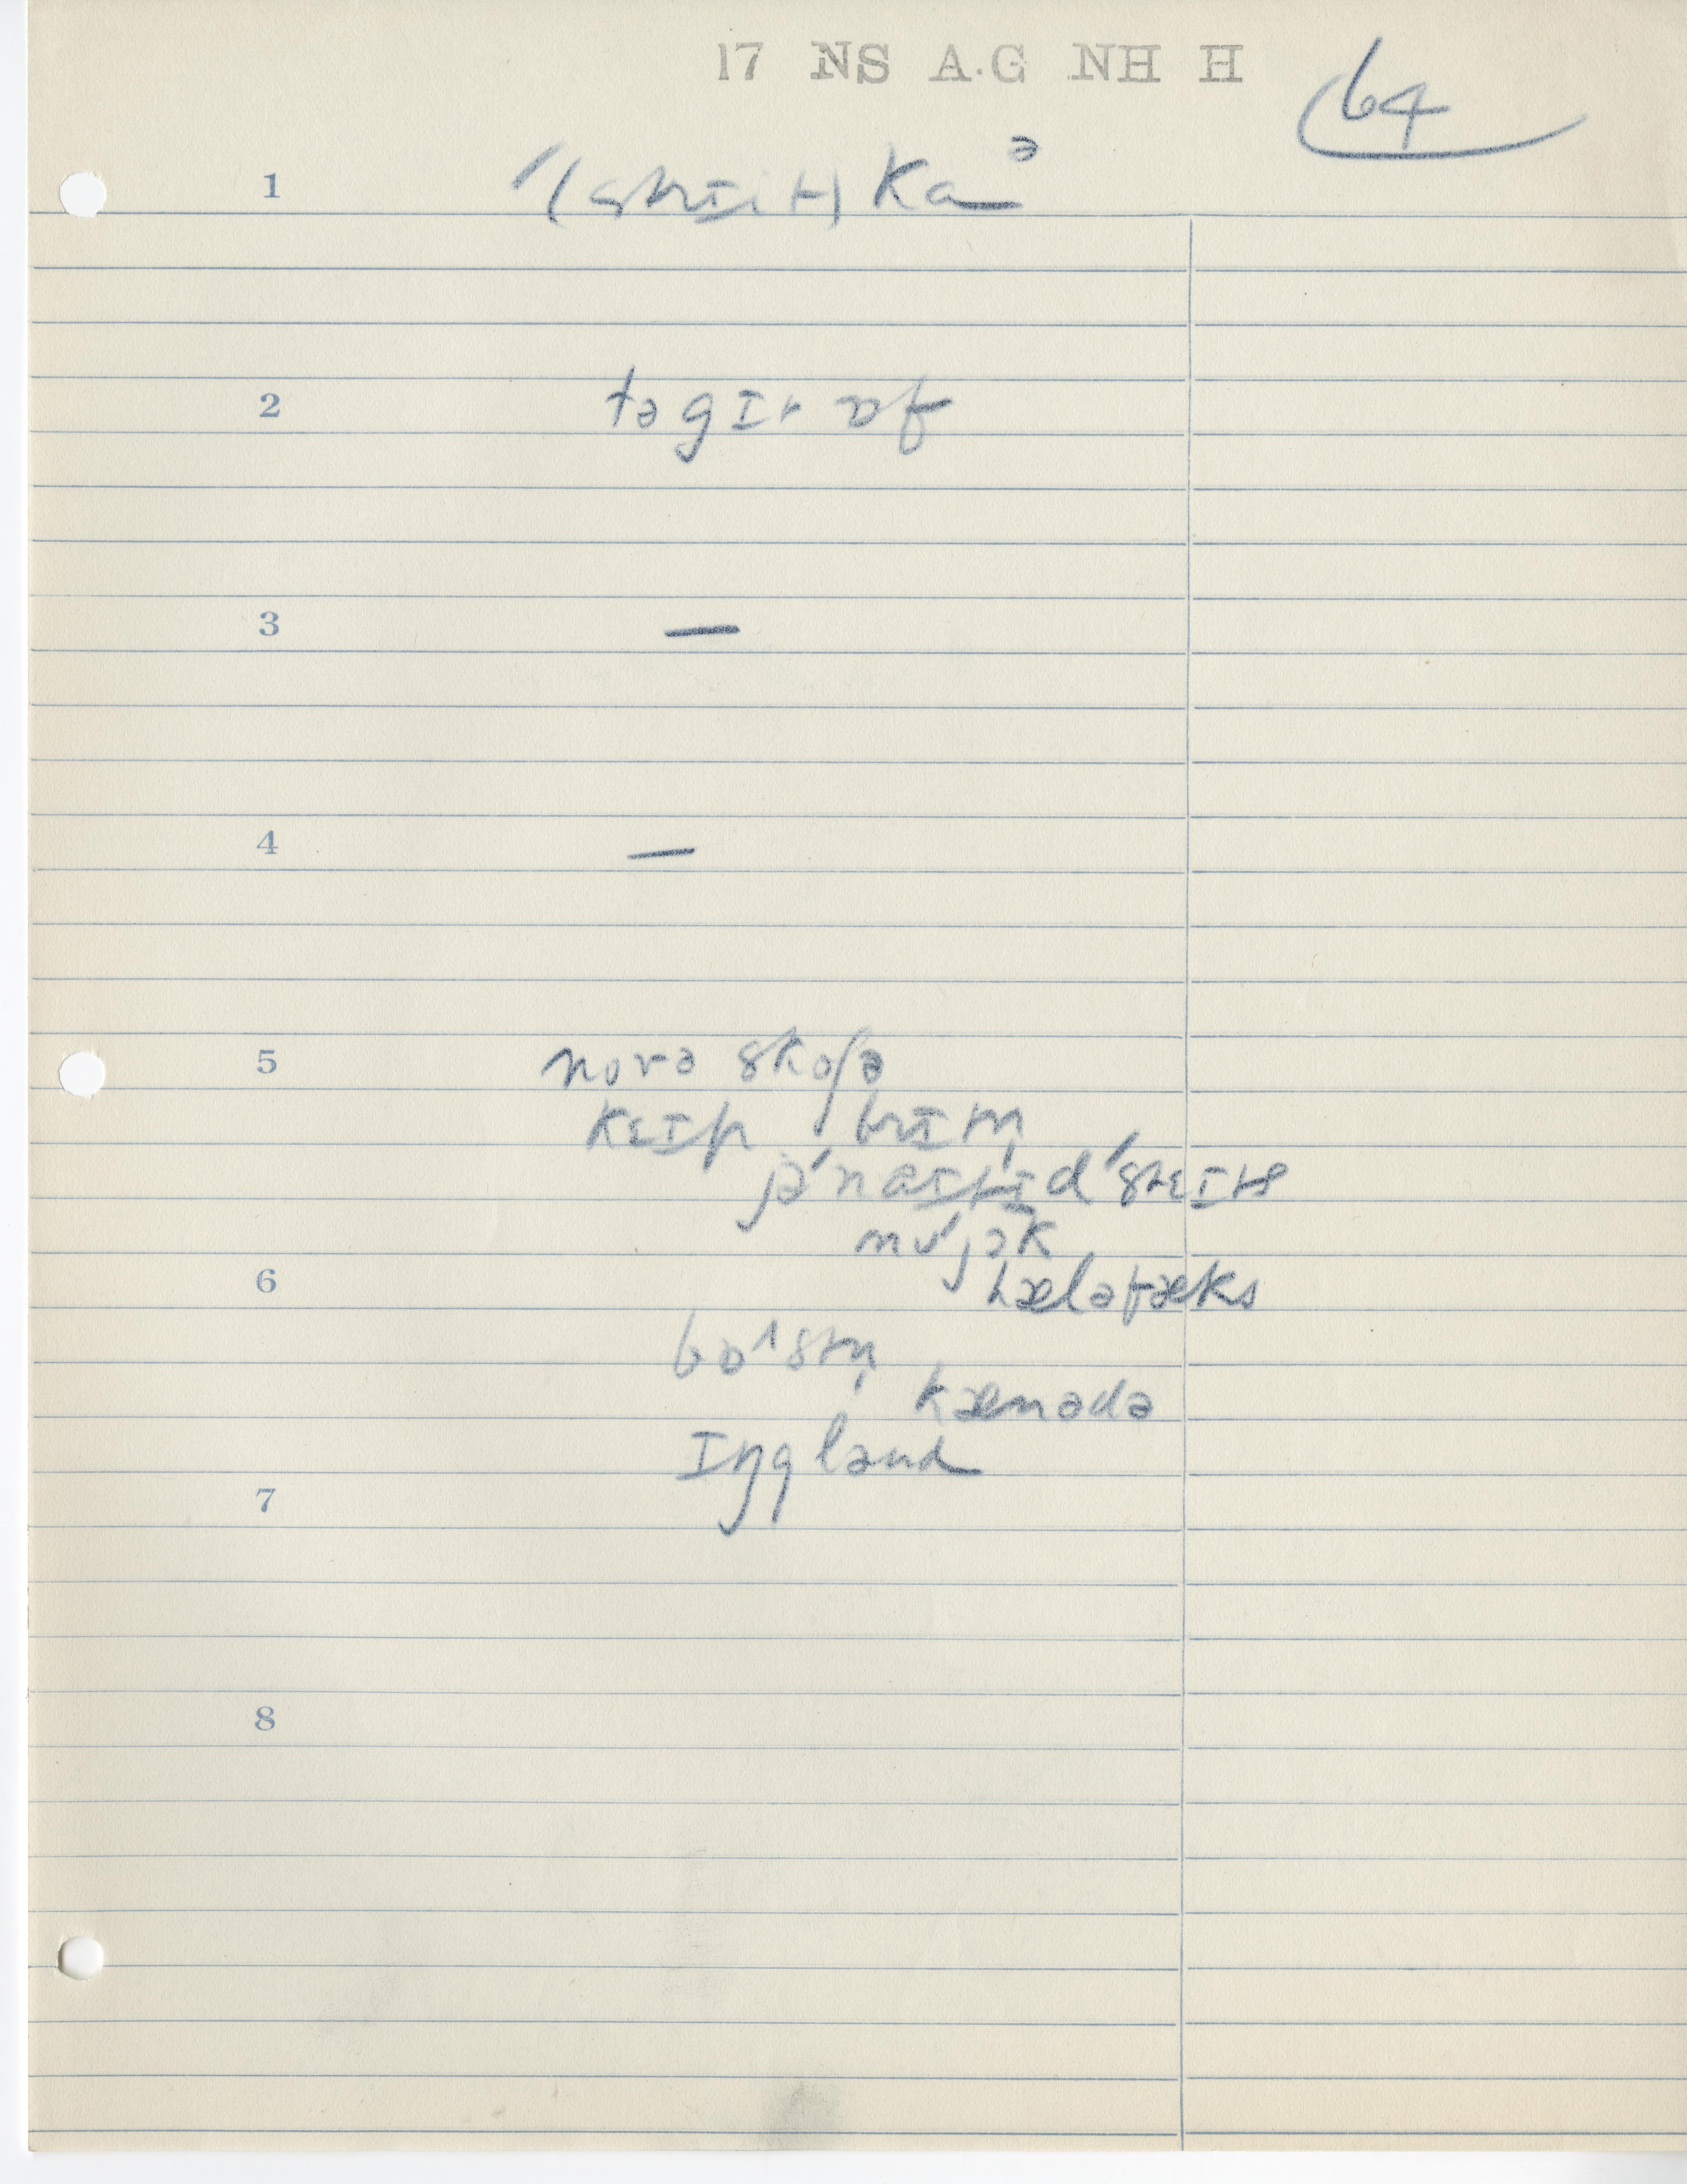 17 NS A.G NH H
64
1 ˈ(strɪit) kaᵊ
2 təgɪt ɒf
3 —
4 —
5 novə skoʃə
kɛɪp brɪtn̩
jəˈnaɪtɪdˈstɛɪts
nʊˈjɔk
6 hæləfæks
bɒ^stn̩
kænədə
ɪŋglənd
7
8